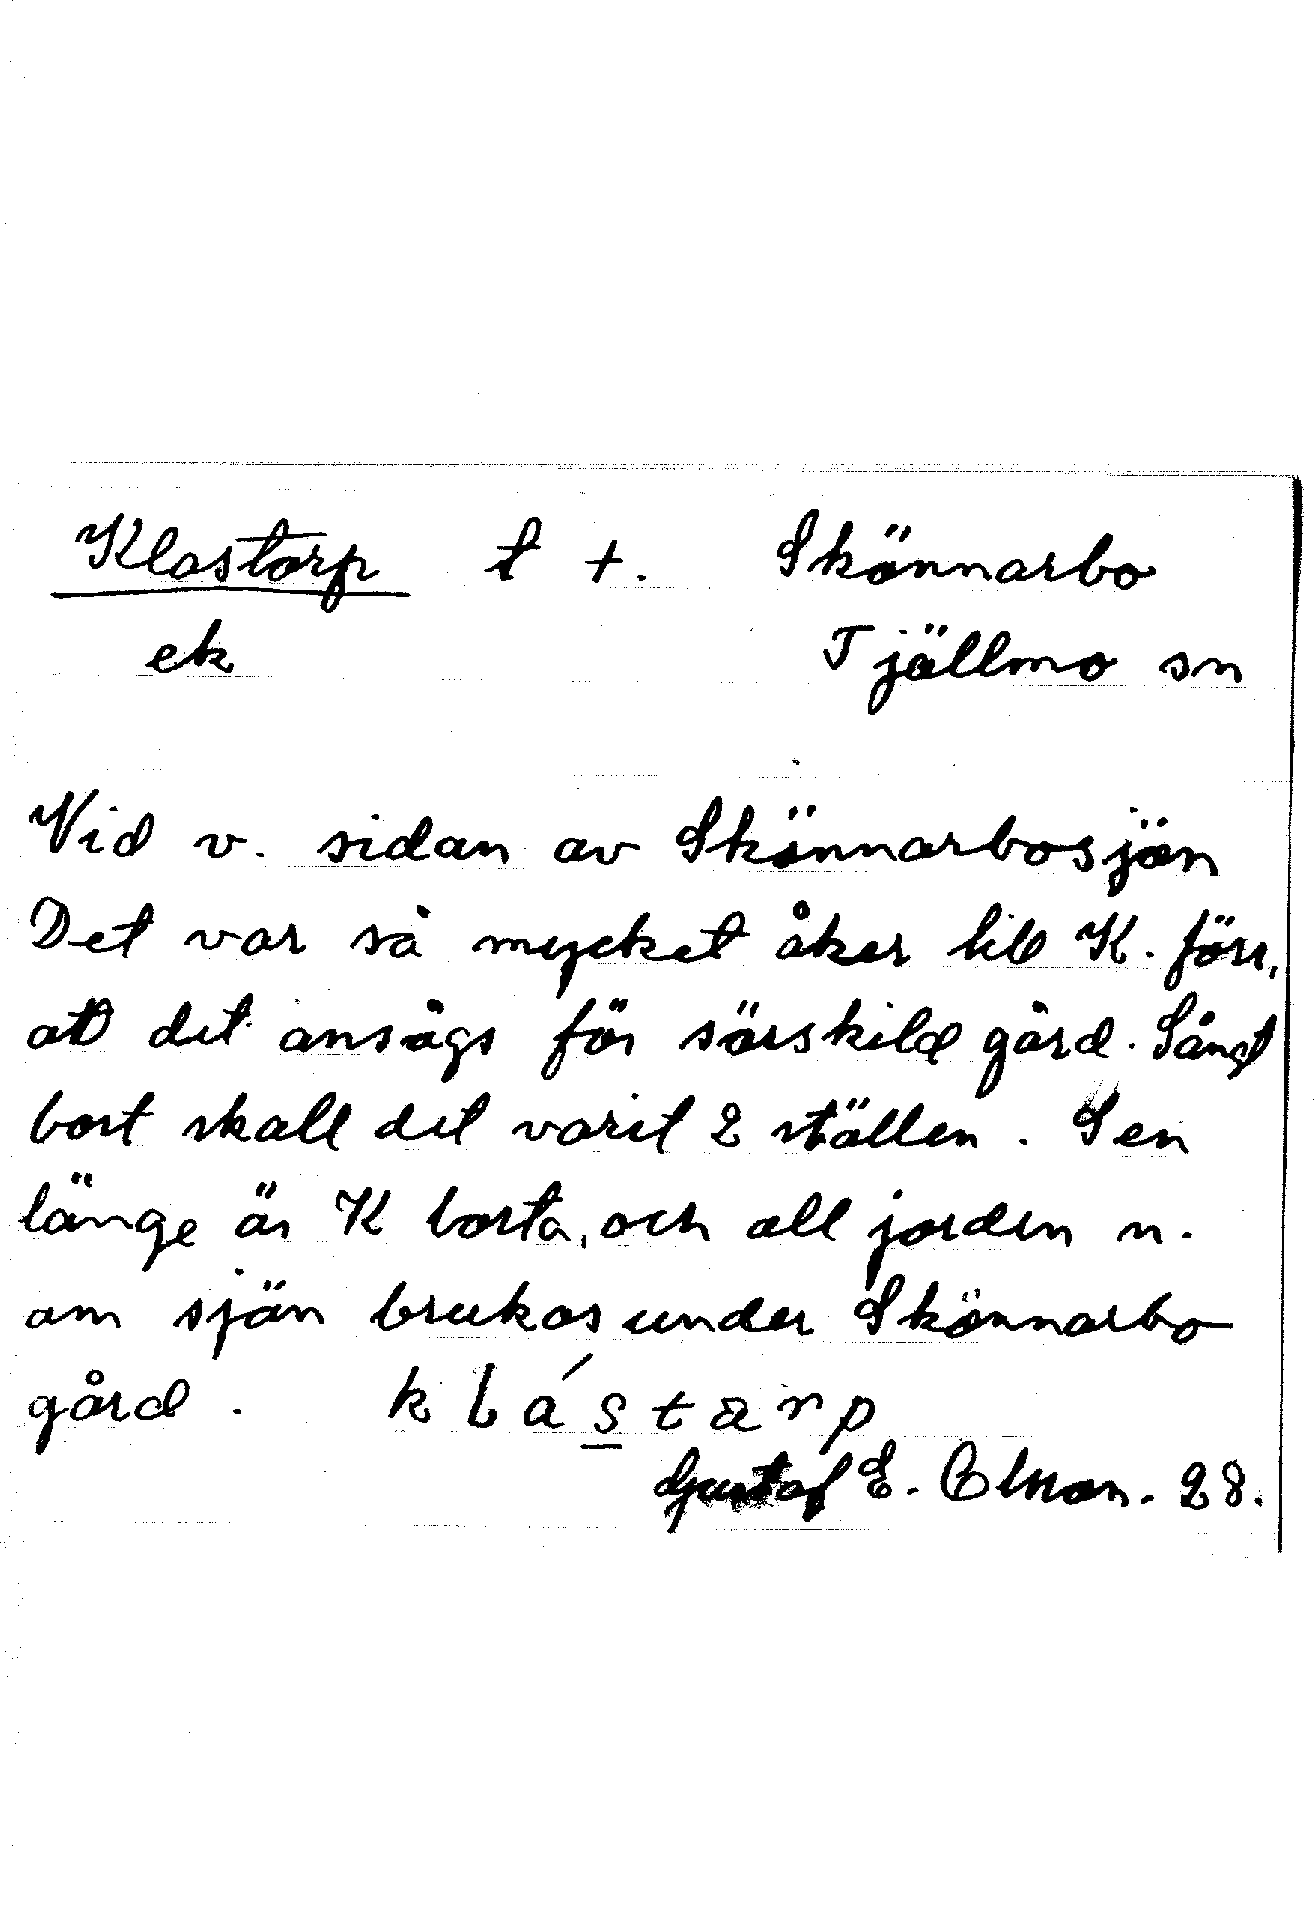 Klastorp t +. Skönnarbo
ek Tjällmo sn
Vid v. sidan av Skönnarbosjön
Det var så mycket åker till K. förr,
att det ansågs för särskild gård. Långt
bort skall det varit 2 ställen. Sen
länge är K borta, och all jorden n.
om sjön brukas under Skönnarbo
gård. klástarp
Gustaf E. Olsson. 28.